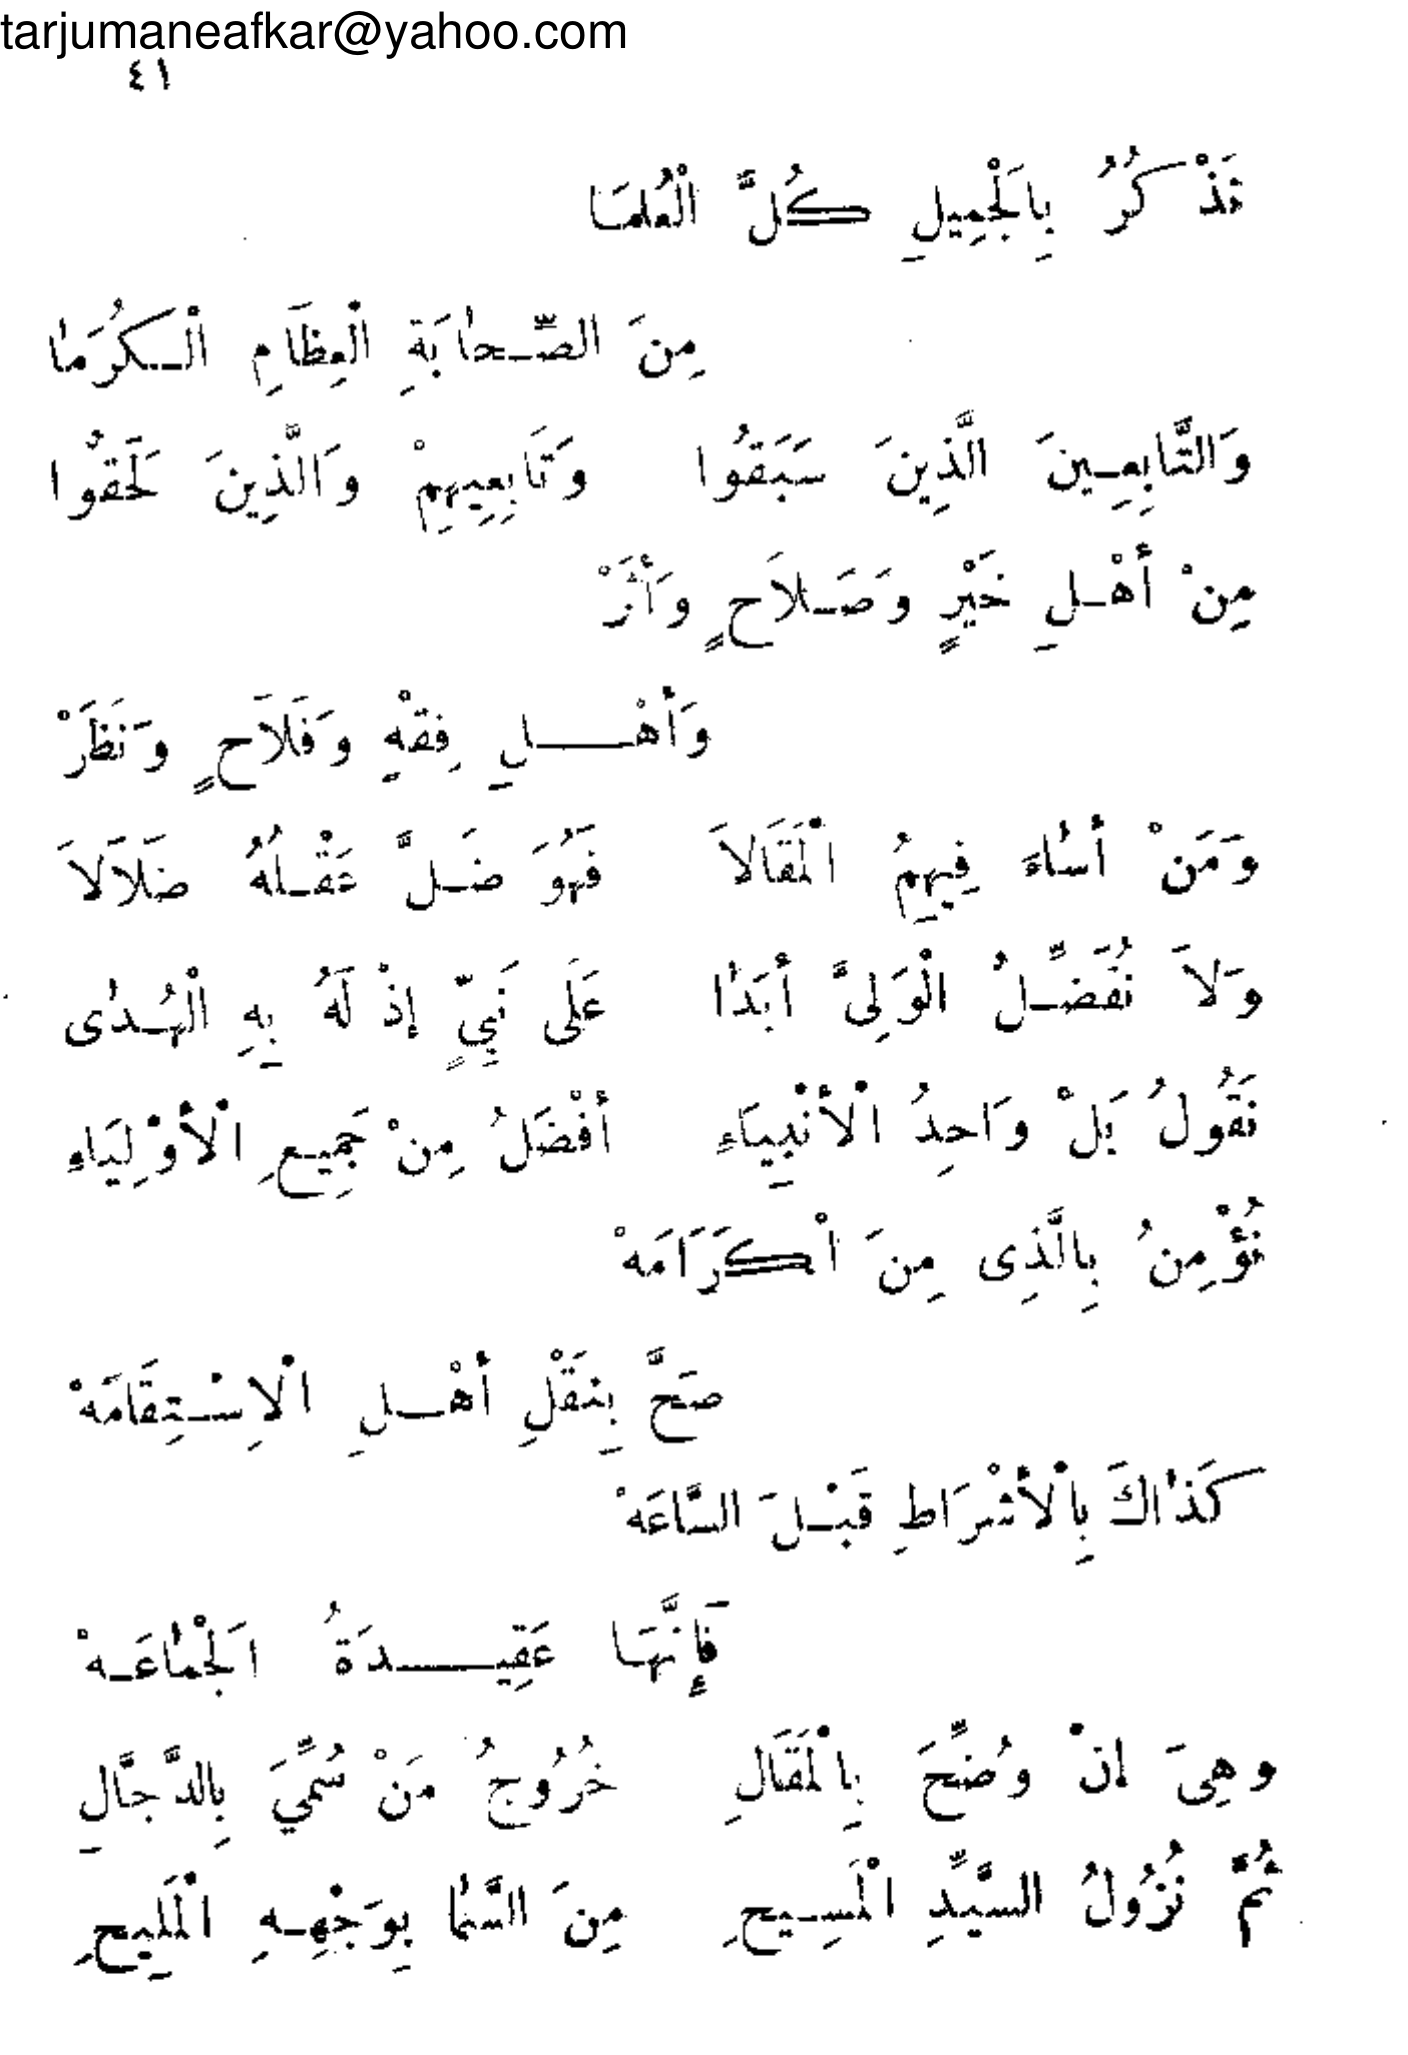 tarjumaneafkar@yahoo.com
٤١
نَذْكُرُ بِالْجَمِيلِ كُلَّ الْعُلَمَا
مِنَ الصِّحَابَةِ الْعِظَامِ الْكُرَمَا
وَالتَّابِعِينَ الَّذِينَ سَبَقُوا وَتَابِعِيهِمْ وَالَّذِينَ لَحَقُوا
مِنْ أَهْلِ خَيْرٍ وَصَلاَحٍ وَأَثَرْ
وَأَهْلِ فِقْهٍ وَفَلاَحٍ وَنَظَرْ
وَمَنْ أَسَاءَ فِيهِمُ الْمَقَالاَ فَهُوَ ضَلَّ عَقْلُهُ ضَلاَلاَ
وَلاَ نُفَضِّلُ الْوَلِىَّ أَبَدَا عَلَى نَبِيٍّ إِذْ لَهُ بِهِ الْهُدَى
نَقُولُ بَلْ وَاحِدُ الْأَنْبِيَاءِ أَفْضَلُ مِنْ جَمِيعِ الْأَوْلِيَاءِ
نُؤْمِنُ بِالَّذِى مِنَ اْكَرَامَهْ
صَحَّ بِنَقْلِ أَهْلِ الْاِسْتِقَامَهْ
كَذَاكَ بِالْأَشْرَاطِ قَبْلَ السَّاعَهْ
فَإِنَّهَا عَقِيدَةُ الْجَمَاعَهْ
وهِىَ إِنْ وُضِّحَ بِالْمَقَالِ خُرُوجُ مَنْ سُمِّيَ بِالدَّجَّالِ
ثُمَّ نُزُولُ السَّيِّدِ الْمَسِيحِ مِنَ السَّمَا بِوَجْهِهِ الْمَلِيحِ